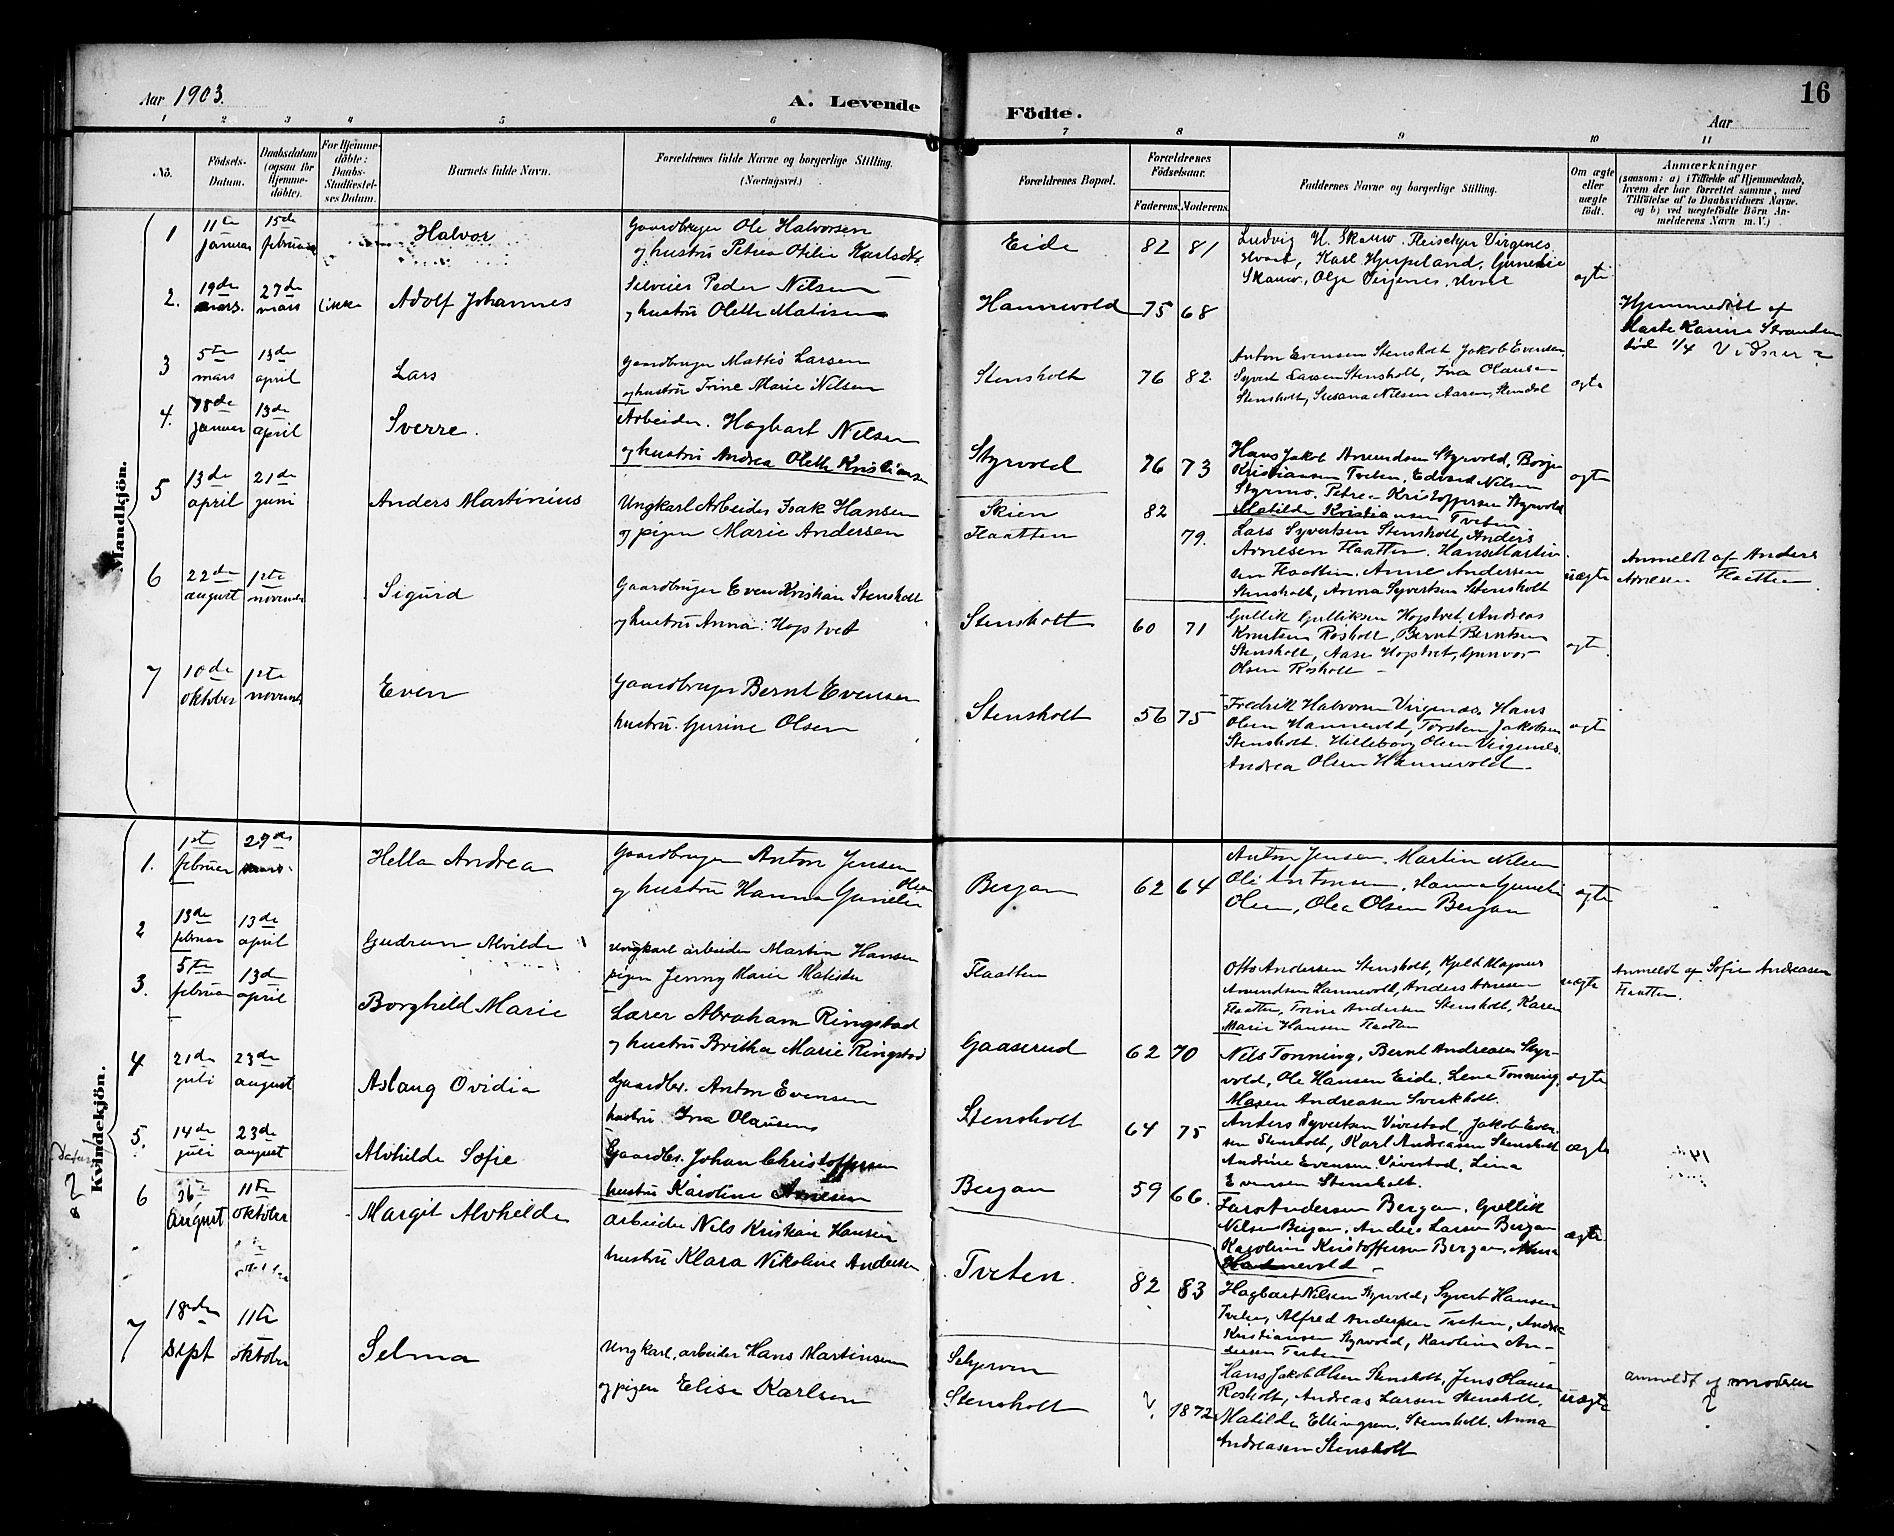 Aar 1903.
A. Levende
Födte.
Aar
16
1 2 3 4 5 6 7 8 9 10 11
No.
Födsels-
Datum.
Daabsdatum
(ogsaa for
Hjemme-
döbte).
For Hjemme-
döbte:
Daabs-
Stadfæstel-
ses Datum.
Barnets fulde Navn.
Forældrenes fulde Navne og borgerlige Stilling.
(Næringsvei.)
Forældrenes Bopæl.
Forældrenes
Födselsaar.
Faderens. Moderens.
Faddernes Navne og borgerlige Stilling.
Om ægte
eller
uægte
födt.
Anmærkninger
(saasom: a) i Tilfælde af Hjemmedaab,
hvem der har forrettet samme, med
Tilföielse af to Daabsvidners Navne.
og b) ved uægtefödte Börn An-
melderens Navn m. V.)
Mandkjön.
1 11te januar 15de februar Halvor
Gaardbruger Ole Halvorsen
og hustru Petrea Otilie Karlsdtr
Eide 82 81
Ludvig H. Skauw. Virgenes
Karl Hjupeland,
Skauw, Olga
ægte
2. 19de mars. 27de mars (ikke Adolf Johannes
Selveier Peder Nilsen
og hustru Olette Matisen
Hannevold 75 68
Hjemmedöbt af
Marte Karine Stranden
död 1/4
3 5te mars 13de april Lars
Gaardbruger Mattis Larsen
og hustru Trine Marie Nilsen
Stensholt 76 82
Anton Evensen Stensholt Jakob Evensen
Syvert Larsen Stensholt, Ina Olausen
Stensholt, Susana Nilsen Aasen, Stendal
ægte
4. 18de januar 13de april Sverre.
Arbeider. Hagbart Nilsen
og hustru Andrea Olette Kristiansen
Styrvold 76 73
Hans Jakob Amundsen Styrvold, Borge
Kristiansen Tveten, Edvard Nilsen
Styrmo, Petrea Kristoffersen Styrvold
Matilde Kristiansen Tveten
ægte
5 13de april 21de juni Anders Martinius
Ungkarl Arbeider Isak Hansen
og pigen Marie Andersen
Skien 82
Flaatten 79.
Lars Syvertsen Stensholt, Anders
Arnesen Flaatten, Hans Martin-
sen Flaatten. Anne Andersen
Stensholt, Anna Syvertsen Stensholt
uægte
Anmeldt af Anders
Arnesen Flaatten
6 22de august 1ste november Sigurd
Gaardbruger Even Kristian Stensholt
og hustru Anna Hopstvet
Stensholt 60 71
Gullik Gulliksen Hopstvet, Andreas
Knutsen Rosholt, Bernt Berntsen
Stensholt, Aase Hopstvet, Gunvor
Olsen Rosholt
ægte.
7 10de oktober 1ste november Even
Gaardbruger Bernt Evensen
hustru. Gurine Olsen
Stensholt 56 75
Fredrik Halvorsen Virgenes, Hans
Olsen Hannevold, Torsten Jakobsen
Stensholt. Hilleborg Olsen Virgenes.
Andrea Olsen Hannevold
ægte
Kvindekjön.
1. 1ste februar 27de mars. Hella Andrea
Gaardbruger Anton Jensen
og hustru Hanna Gunelie Olsen
Bergan 62 64
Anton Jensen, Martin Nilsen
Ole Antonsen, Hanna Gunelie
Olsen, Olea Olsen Bergan
ægte
2 13de februar 13de april Gudrun Alvilde
ungkarl arbeider Martin Hansen
pigen Jenny Marie Matisdtr
Flaatten
Otto Andersen Stensholt, Kjeld Magnus
Amundsen Hannevold, Anders Arnesen
Flaatten, Trine Andersen Stensholt, Karen
Marie Hansen Flaatten
uægte
Anmeldt af Sofie Andreasen
Flaatten.
3. 5te februar 13de april Borghild Marie
Lærer Abraham Ringstad
og hustru Britha Marie Ringstad
Gaaserud 62 70
Nils Tonning, Bernt Andreasen Styr-
vold, Ole Hansen Eide. Lena Tonning,
Maren Andreasen Sverkholt.
ægte
4 21de juli 23de august Aslaug Ovidia
Gaardbr. Anton Evensen
hustru. Ina Olausen
Stensholt 64 75
Anders Syvertsen Vivestad, Jakob Even-
sen Stensholt, Karl Andreasen Stensholt
Andrine Evensen Vivestad, Lina
Evensen Stensholt.
ægte
5. 14de juli 23de august Alvhilde Sofie
Gaardbr. Johan Christoffersen
hustru Karoline Arnesen
Bergan 59 66.
Lars Andersen Bergan. Gullik
Nilsen Bergan, Andrea Larsen Bergan
Karoline Kristoffersen Bergan, Anna
Hannevold
ægte
6 26 august 11te oktober Margit Alvhilde
arbeider Nils Kristian Hansen
hustru Klara Nikoline Andersen
Tveten. 82 83
Hagbart Nilsen Styrvold, Syvert Hansen
Tveten, Alfred Andersen Tveten, Andrea
Kristiansen Styrvold, Karoline An-
dersen Tveten
7 18de Sept 11te oktober Selma
Ungkarl, arbeider Hans Martinsen
og pigen Elise Karlsen
Stensholt ? 1872
Hans Jakob Olsen Stensholt, Jens Hansen
Rosholt, Andreas Larsen Stensholt,
Matilde Ellingsen Stensholt. Anna
Andreasen Stensholt
uægte
anmeldt af moderen
?